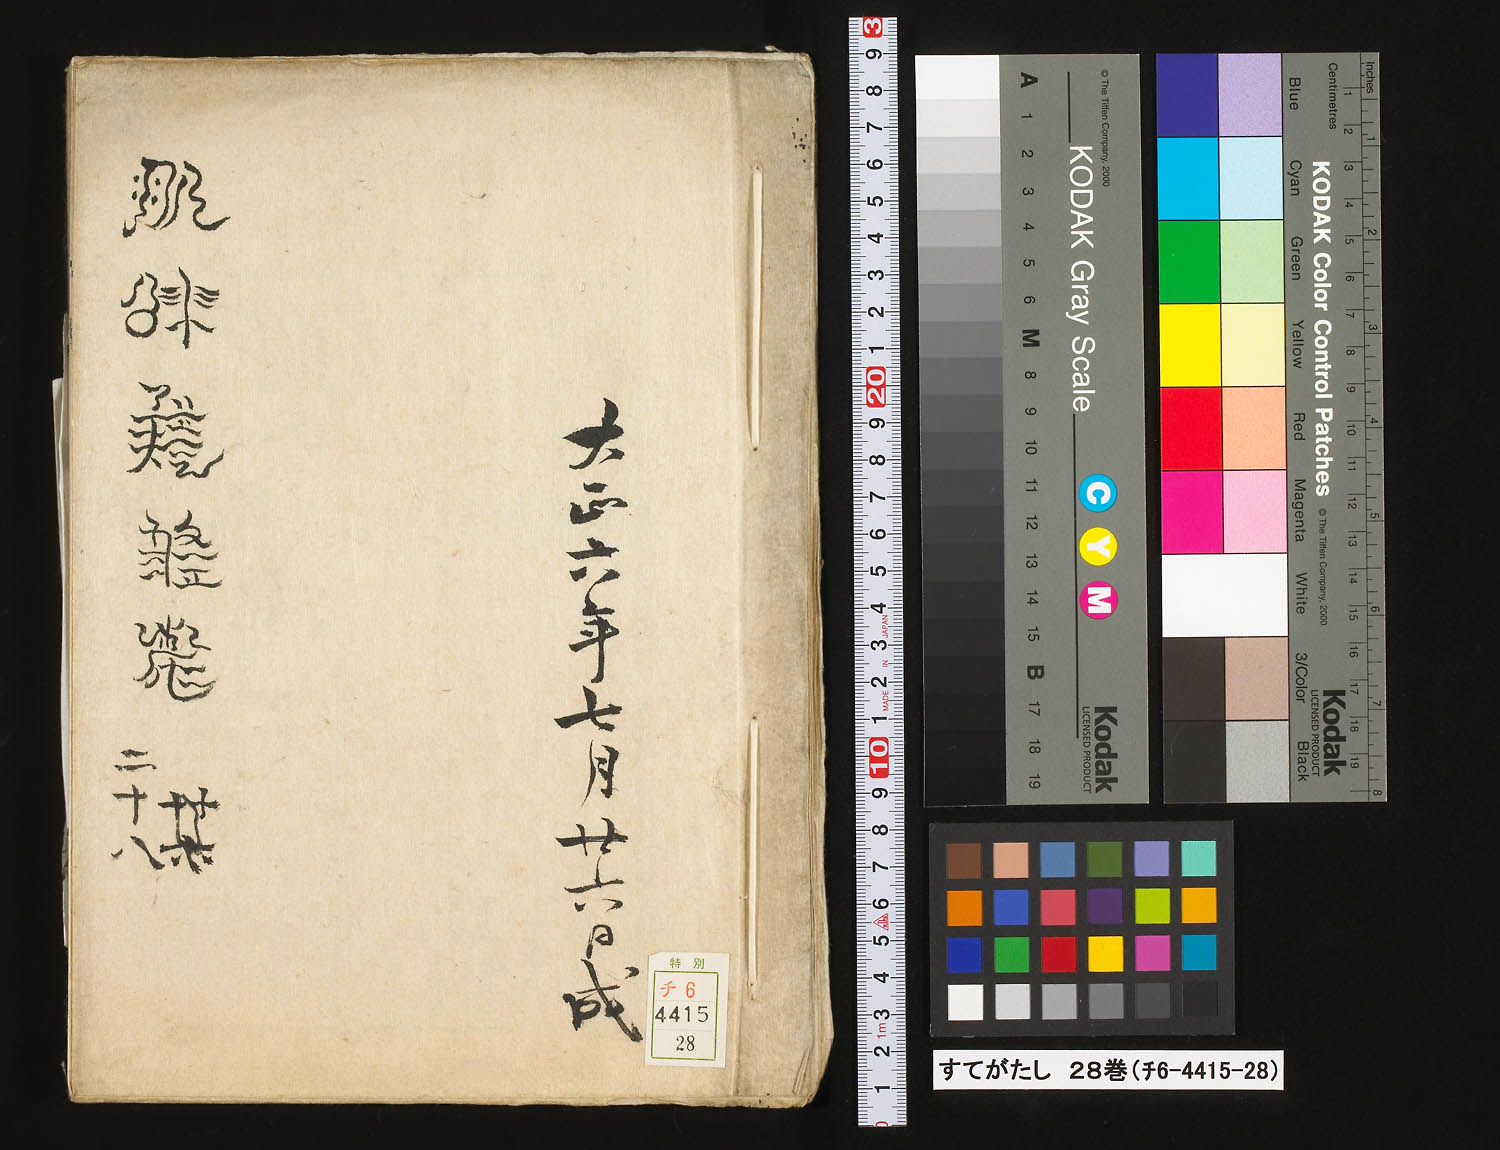 大正六年七月廿六日成
二十八
特別
チ6
4415
28
3 9 8 7 6 5 4 3 2 1 20 9 8 7 6 5 4 3 2 1 10 9 8 7 6 5 4 3 2 1
1m
MADE IN JAPAN
© The Tiffen Company, 2000
KODAK Gray Scale
C Y M
Kodak
LICENSED PRODUCT
A 1 2 3 4 5 6 M 8 9 10 11 12 13 14 15 B 17 18 19
Inches
1 2 3 4 5 6 7 8
Centimetres
1 2 3 4 5 6 7 8 9 10 11 12 13 14 15 16 17 18 19
KODAK Color Control Patches
© The Tiffen Company, 2000
Kodak
LICENSED PRODUCT
Blue Cyan Green Yellow Red Magenta White 3/Color Black
すてがたし 28巻(チ6-4415-28)